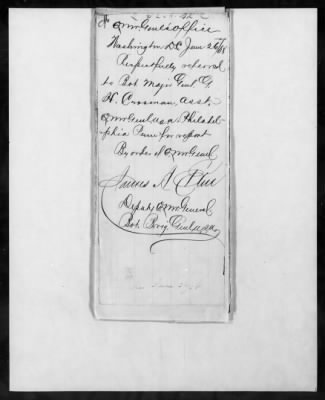 Qr Mr Genl's Office
Washington D.C. June 26
Respectfully referred
to Bvt Major Genl G.
H. Crosman, asst.
Q mr Genl U.S.A. Philadel-
phia Penn for report
By order of Q mr Genl
James A. Ekin
Deputy Q mr General
Bvt. Brig. Genl U.S.A.